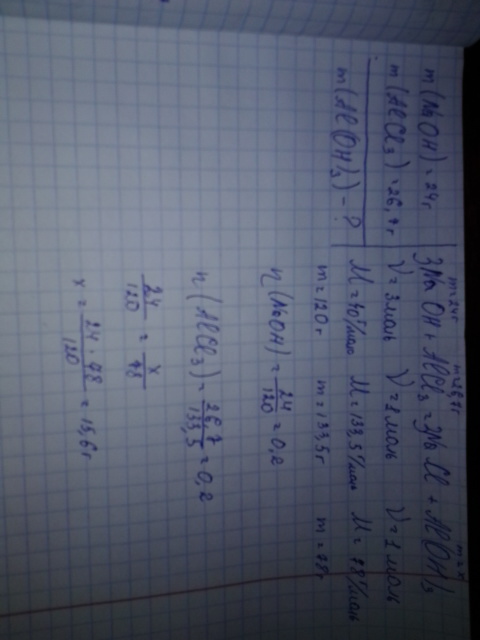 m(NaOH)=24г
m(AlCl₃)=26,7г
m(Al(OH)₃)-?
m=24г m=26,7г m=x
3NaOH+AlCl₃=3NaCl+Al(OH)₃
ν=3моль ν=1моль ν=1моль
M=40г/моль M=133,5г/моль M=78г/моль
m=120г m=133,5г m=78г
n(NaOH)=24/120=0,2
n(AlCl₃)=26,7/133,5=0,2
24/120=x/78
x=24·78/120=15,6г